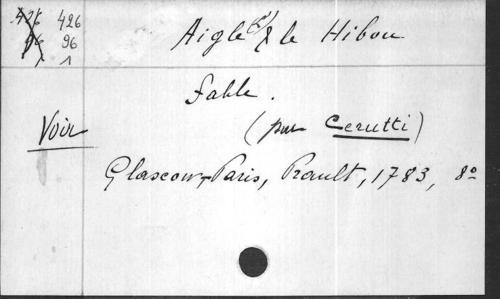 426 426
96 96
1
Aigle (l') & le Hibou
Fable.
Voir
(par Cerutti)
Glascow, Paris, Prault, 1783, 8º